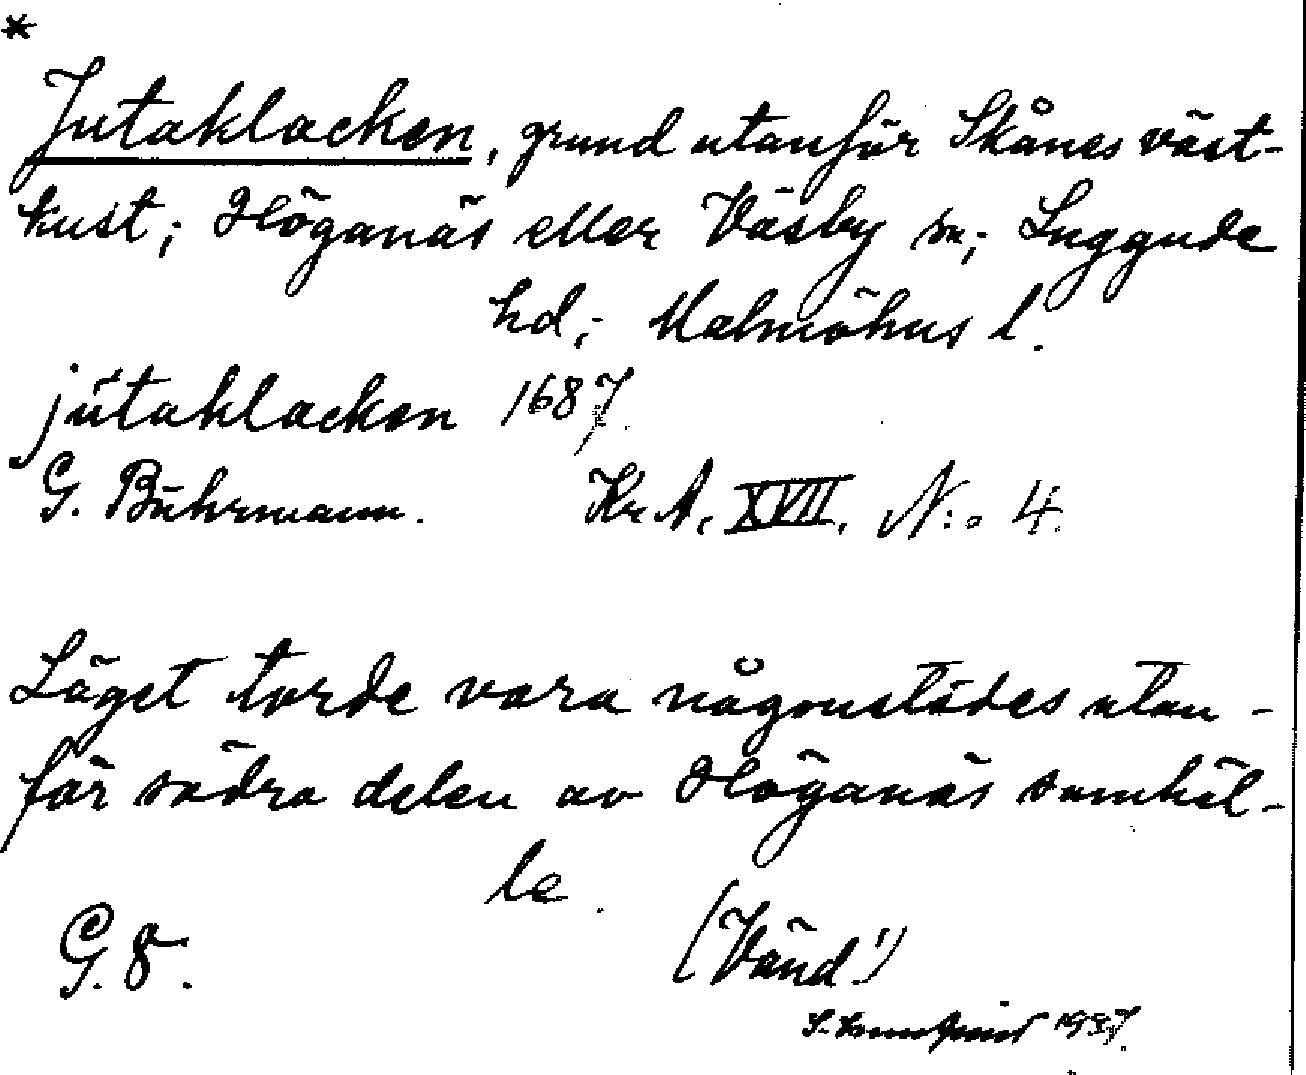 *
Jutaklacken, grund utanför Skånes väst-
kust; Höganäs eller Väsby sn; Luggude
hd; Malmöhus l.
jutaklacken 1687.
G. Buhrmann. KrA. XVII. N:o 4.
Läget torde vara någonstädes utan-
för södra delen av Höganäs samhäl-
le.
G. 8. (Vänd!)
1937.